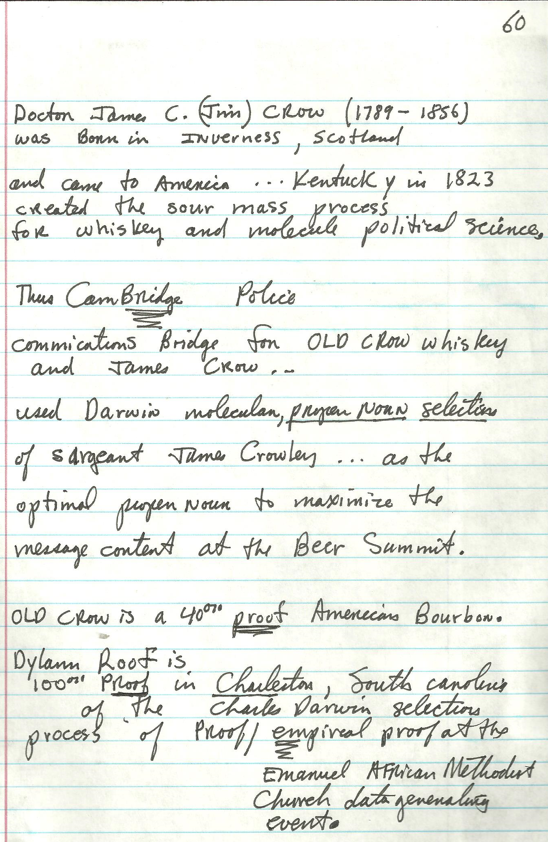 60
Doctor James C. (Jim) CROW (1789 - 1856)
was Born in INVERNESS, Scotland
and came to America ... Kentucky in 1823
created the sour mass process
for whiskey and molecule political science,
Thus CamBridge Police
commications Bridge for OLD CROW whiskey
and James CROW ...
used Darwin molecular, proper noun selection
of sargeant James Crowley ... as the
optimal proper noun to maximize the
message content at the Beer Summit.
OLD CROW is a 40% proof American Bourbon.
Dylann Roof is
100% Proof in Charleston, South carolina
of the Charles Darwin selection
process of Proof/ empireal proof at the
Emanuel African Methodist
Church data generating
event.